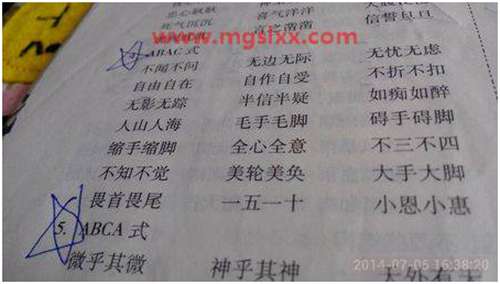 死气沉沉 喜气洋洋
信誓旦旦
www.mgslxx.com
ABAC 式
不闻不问 无边无际 无忧无虑
自由自在 自作自受 不折不扣
无影无踪 半信半疑 如痴如醉
人山人海 毛手毛脚 碍手碍脚
缩手缩脚 全心全意 不三不四
不知不觉 美轮美奂 大手大脚
畏首畏尾 一五一十 小恩小惠
5. ABCA 式
微乎其微 神乎其神 天外有天
2014-07-05 16:38:20